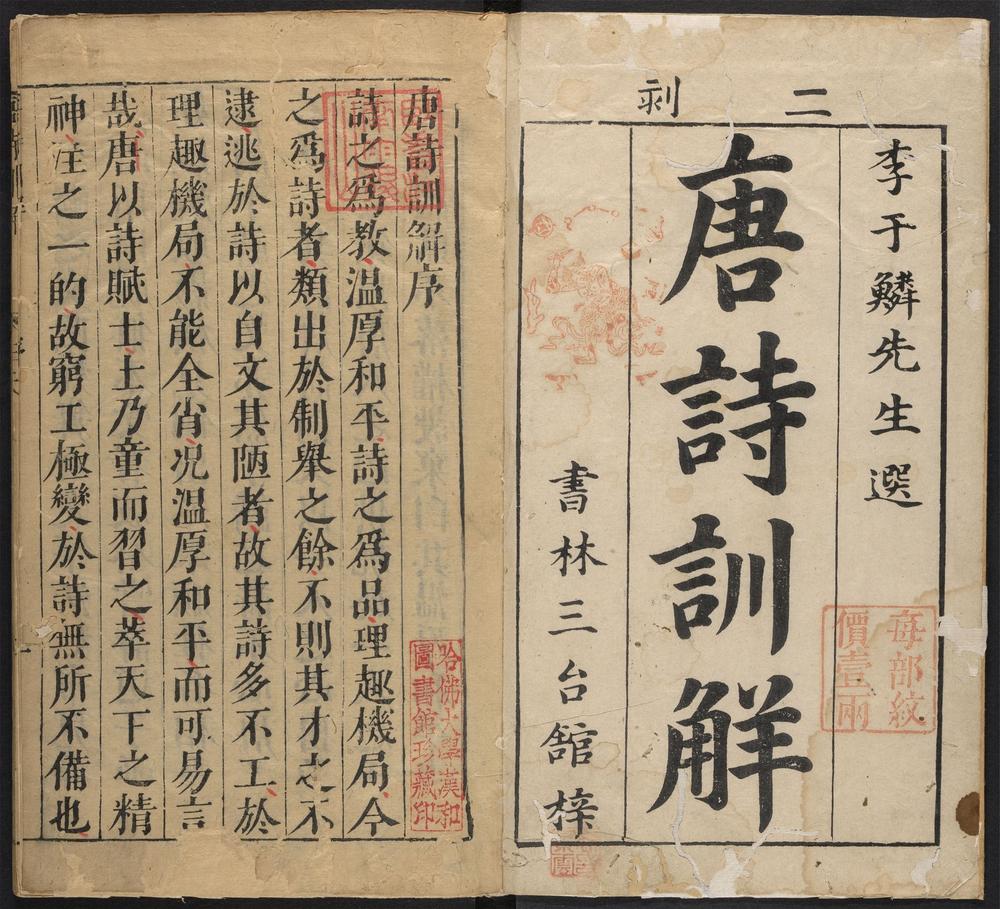 二剥
李于鱗先生選
唐詩訓解
書林三台舘梓
每部紋
價壹兩
唐詩訓解序
詩之爲教溫厚和平詩之爲品理趣機局今
之爲詩者類出於制舉之餘不則其才之不
逮逃於詩以自文其陋者故其詩多不工於
理趣機局不能全省况溫厚和平而可易言
哉唐以詩賦士士乃童而習之萃天下之精
神注之一的故窮工極變於詩無所不備也
哈佛大學漢和
圖書館珍藏印